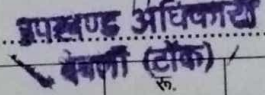 उपखण्ड अधिकारी
देवली (टोंक)
रू.